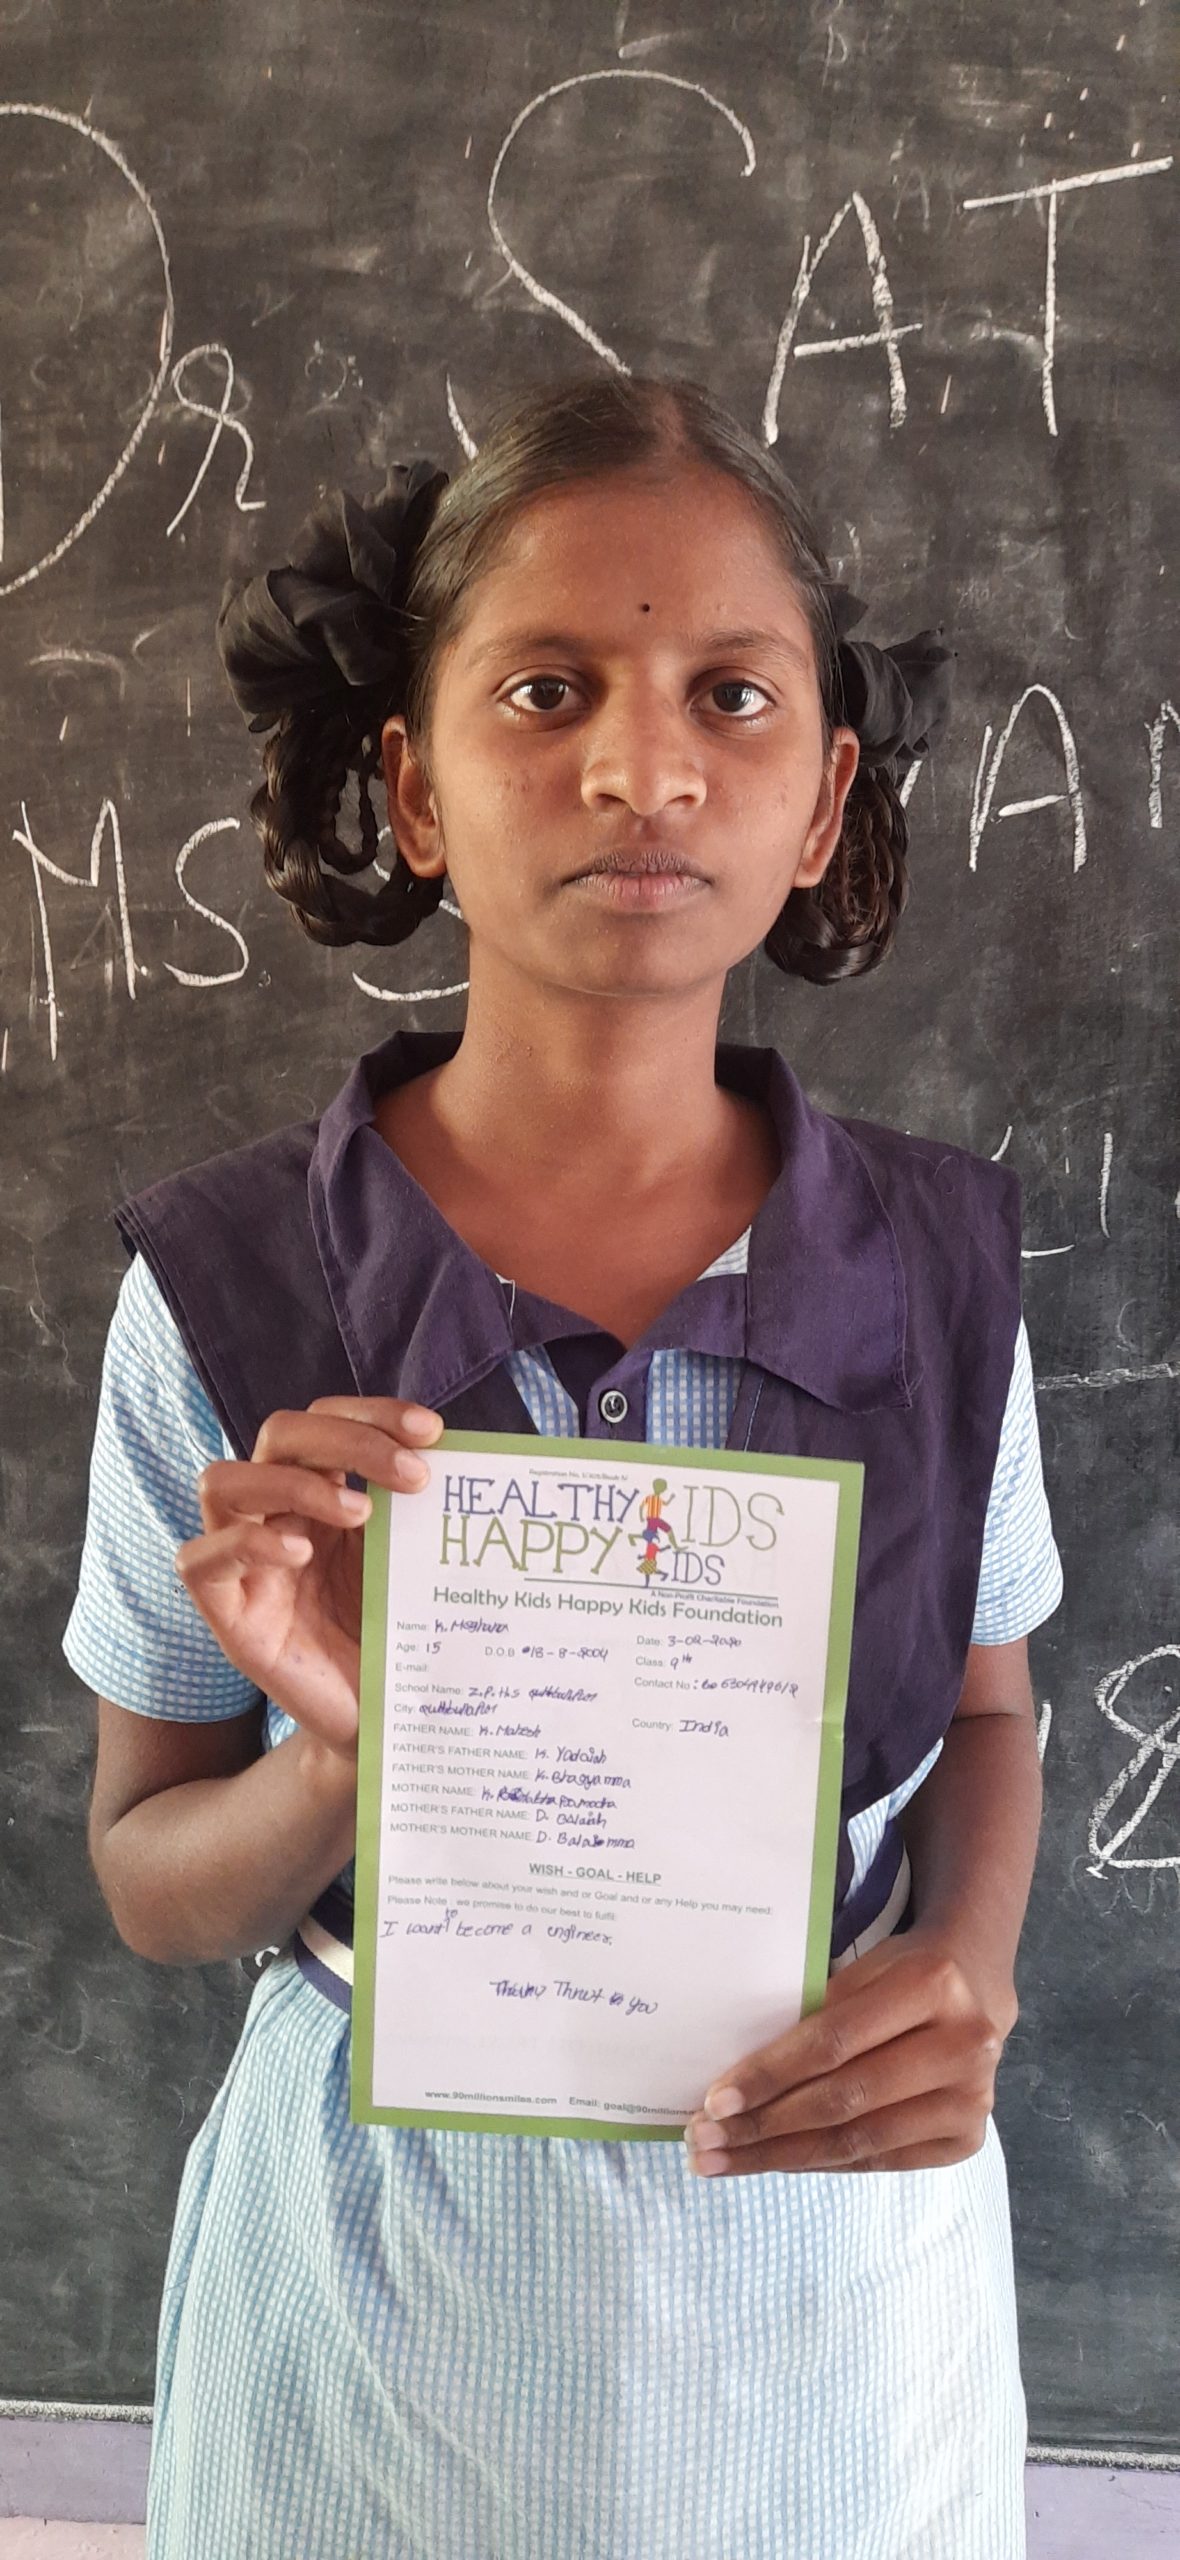 Dr SAT
MS. S
Registration No.
HEALTHY KIDS
HAPPY KIDS
A Non-Profit Charitable Foundation
Healthy Kids Happy Kids Foundation
Name: K. Meghana Date: 3-02-2020
Age: 15 D.O.B 18-8-2004 Class: 9th
E-mail: Contact No:
School Name: Z.P.H.S Quthbullapur
City: Quthbullapur Country: India
FATHER NAME: K. Mahesh
FATHER'S FATHER NAME: K. Yadaiah
FATHER'S MOTHER NAME: K. Bhagyamma
MOTHER NAME: K.
MOTHER'S FATHER NAME: D. Balaiah
MOTHER'S MOTHER NAME: D.
WISH - GOAL - HELP
Please write below about your wish and or Goal and or any Help you may need:
Please Note: we promise to do our best to fulfil:
I want to become a engineer.
You
www.90millionsmiles.com Email: goal@90millions